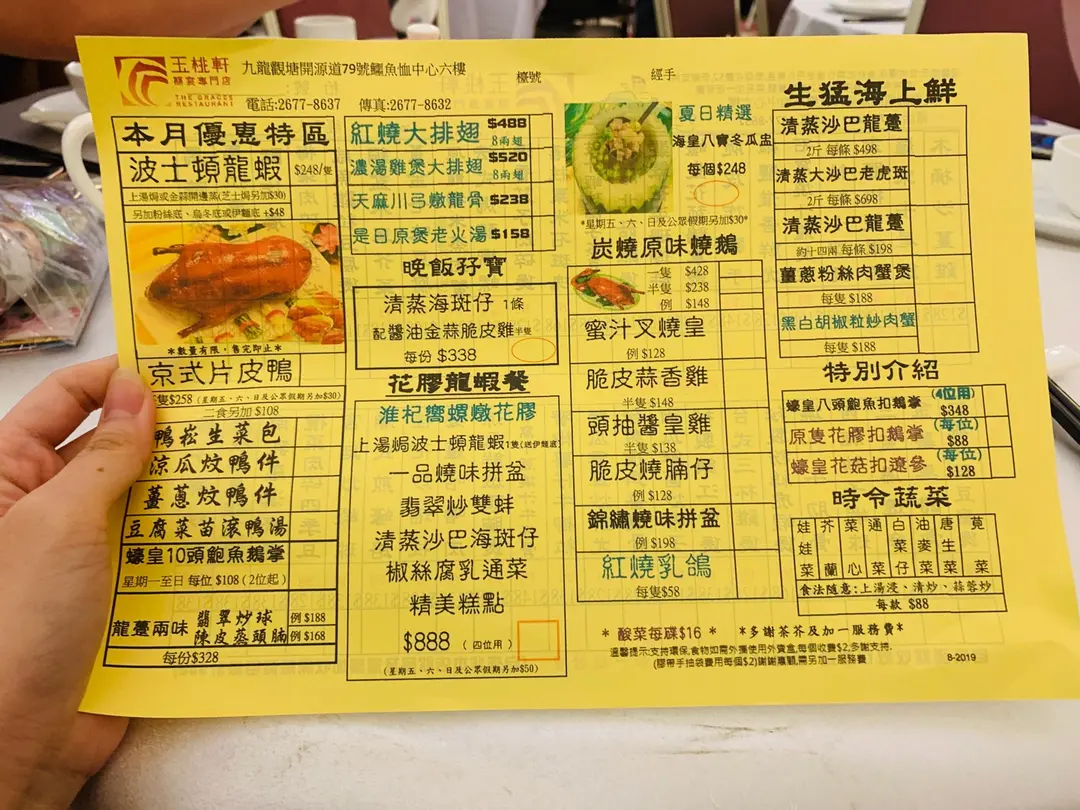 玉桃軒
囍宴專門店
THE GRACES
RESTAURANT
九龍觀塘開源道79號鱷魚恤中心六樓
電話:2677-8637 傳真:2677-8632
檯號
經手
本月優惠特區
波士頓龍蝦 $248/隻
上湯焗或金蒜開邊蒸(芝士焗另加$30)
另加粉絲底、烏冬底或伊麵底 +$48
*數量有限，售完即止*
京式片皮鴨
隻$258 (星期五、六、日及公眾假期另加$30)
二食另加 $108
鴨崧生菜包
涼瓜炆鴨件
薑蔥炆鴨件
豆腐菜苗滾鴨湯
蠔皇10頭鮑魚鵝掌
星期一至日 每位 $108 ( 2位起 )
龍躉兩味
翡翠炒球 例 $188
陳皮蒸頭腩 例 $168
每份$328
紅燒大排翅 $488
8兩翅
濃湯雞煲大排翅 $520
8兩翅
天麻川弓燉龍骨 $238
是日原煲老火湯 $158
晚飯孖寶
清蒸海斑仔 1條
配醬油金蒜脆皮雞 半隻
每份 $338
花膠龍蝦餐
淮杞嚮螺燉花膠
上湯焗波士頓龍蝦1隻(送伊麵底)
一品燒味拼盆
翡翠炒雙蚌
清蒸沙巴海斑仔
椒絲腐乳通菜
精美糕點
$888 ( 四位用 )
(星期五、六、日及公眾假期另加$50)
夏日精選
海皇八寶冬瓜盅
每個$248
*星期五、六、日及公眾假期另加$30*
炭燒原味燒鵝
一隻 $428
半隻 $238
例 $148
蜜汁叉燒皇
例 $128
脆皮蒜香雞
半隻 $148
頭抽醬皇雞
半隻 $138
脆皮燒腩仔
例 $128
錦繡燒味拼盆
例 $198
紅燒乳鴿
每隻$58
生猛海上鮮
清蒸沙巴龍躉
2斤 每條 $498
清蒸大沙巴老虎斑
2斤 每條 $698
清蒸沙巴龍躉
約十四兩 每條 $198
薑蔥粉絲肉蟹煲
每隻 $188
黑白胡椒粒炒肉蟹
每隻 $188
特別介紹
蠔皇八頭鮑魚扣鵝掌 (4位用) $348
原隻花膠扣鵝掌 (每位) $88
蠔皇花菇扣遼參 (每位) $128
時令蔬菜
娃娃菜 芥蘭 菜心 通菜 白菜仔 油麥菜 唐生菜 莧菜
食法隨意:上湯浸、清炒、蒜蓉炒
每款 $88
* 酸菜每碟$16 * *多謝茶芥及加一服務費*
溫馨提示:支持環保,食物如需外攜使用外賣盒,每個收費$2,多謝支持.
(膠帶手抽袋費用每個$2)謝謝專顧,需另加一服務費
8-2019